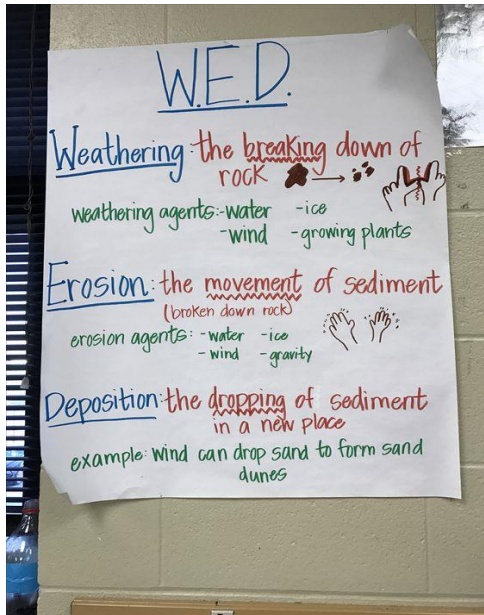 W.E.D.
Weathering: the breaking down of
rock
weathering agents: -water -ice
-wind -growing plants
Erosion: the movement of sediment
(broken down rock)
erosion agents: -water -ice
-wind -gravity
Deposition: the dropping of sediment
in a new place
example: wind can drop sand to form sand
dunes